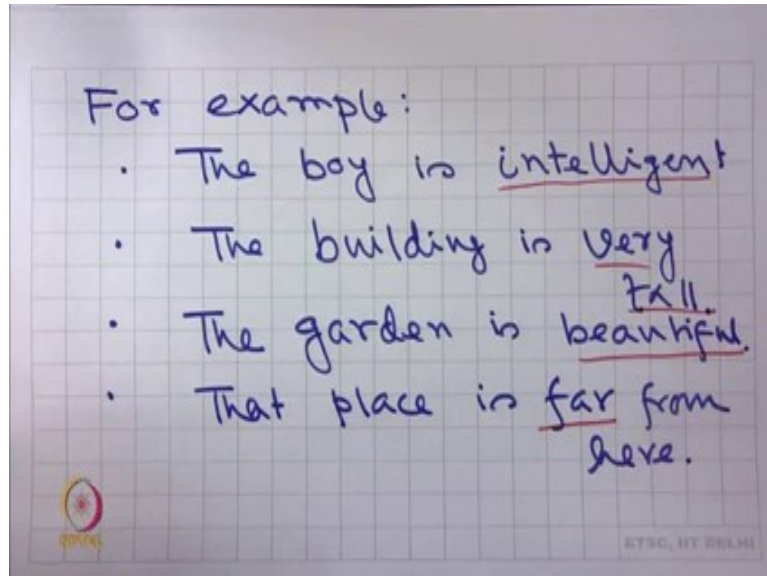 For example:
· The boy is intelligent
· The building is very
tall.
· The garden is beautiful.
· That place is far from
here.
ETSC, IIT DELHI